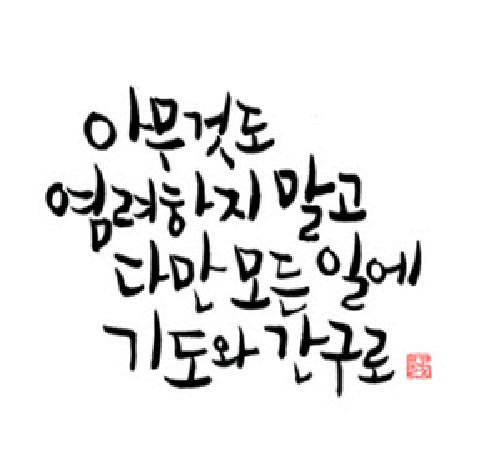 아무것도
염려하지 말고
다만 모든 일에
기도와 간구로